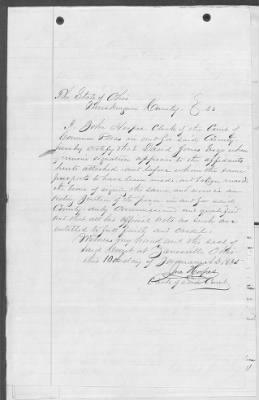 The State of Ohio
Muskingum County } SS
I John Hopes Clerk of the Court of
Common Pleas in and for said County
hereby certify that David Jones Esqr whose
genuine signature appears to the affidavits
hereto attached and before whom the same
purports to have been made, was
the time of signing the same and now is an
acting Justice of the peace in and for said
County duly Commissioned and qualified
and that all his official acts as such are
entitled to full faith and credit.
Witness my hand and the seal of
said Court at Zanesville Ohio
this 10th day of
Jno Hopes
Clerk of said Court